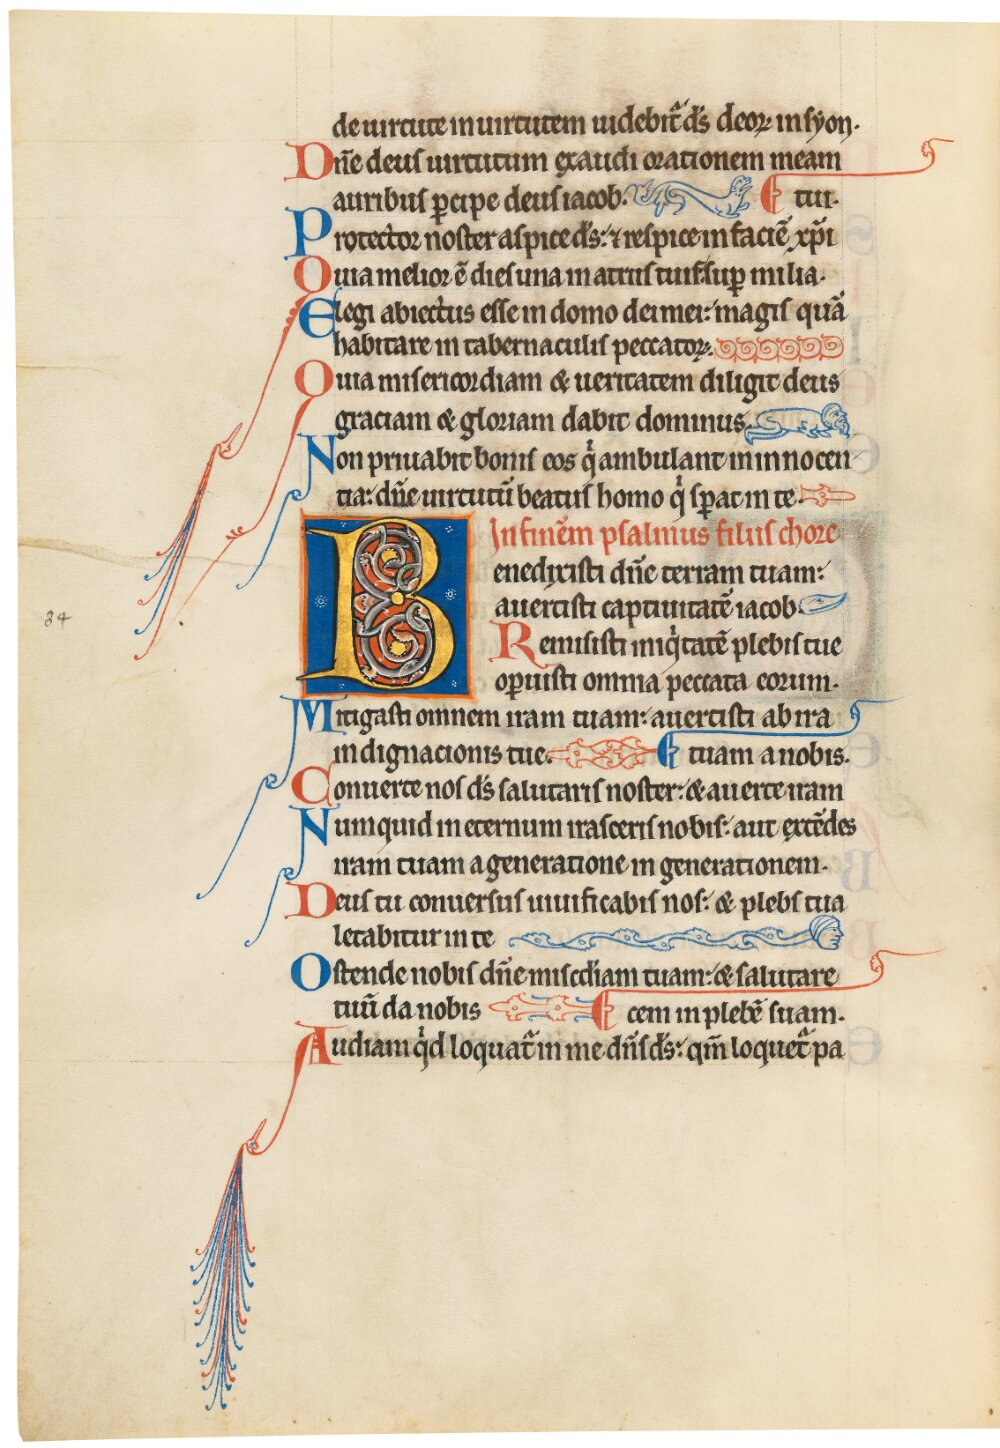 de uirtute in uirtutem uidebit᷑ d̄s deoꝝ in syon.
Dn̄e deus uirtutum exaudi orationem meam
auribus ꝑcipe deus iacob. tui.
Protector noster aspice d̄s: ⁊ respice in faciē xp̄i
Quia melior ē dies una in atriis tuis: suꝑ milia.
Elegi abiectus esse in domo dei mei: magis quā
habitare in tabernaculis peccatoꝝ.
Quia misericordiam & ueritatem diligit deus
graciam & gloriam dabit dominus.
Non priuabit bonis eos qͥ ambulant in innocen
tia: dn̄e uirtutū beatus homo qͥ sꝑat in te.
In finēm psalmus filiis chore
Benedixisti dn̄e terram tuam:
auertisti captiuitatē iacob.
Remisisti iniqͥtatē plebis tue
oꝑuisti omnia peccata eorum.
Mitigasti omnem iram tuam: auertisti ab ira
indignacionis tue. tuam a nobis.
Conuerte nos d̄s salutaris noster: & auerte iram
Numquid in eternum irasceris nobis: aut extēdes
iram tuam a generatione in generationem.
Deus tu conuersus uiuificabis nos: & plebs tua
letabitur in te
Ostende nobis dn̄e misc̄diam tuam: & salutare
tuū da nobis cem in plebē suam.
Audiam qͥd loquat᷑ in me dn̄s d̄s: qm̄ loquet᷑ pa
84